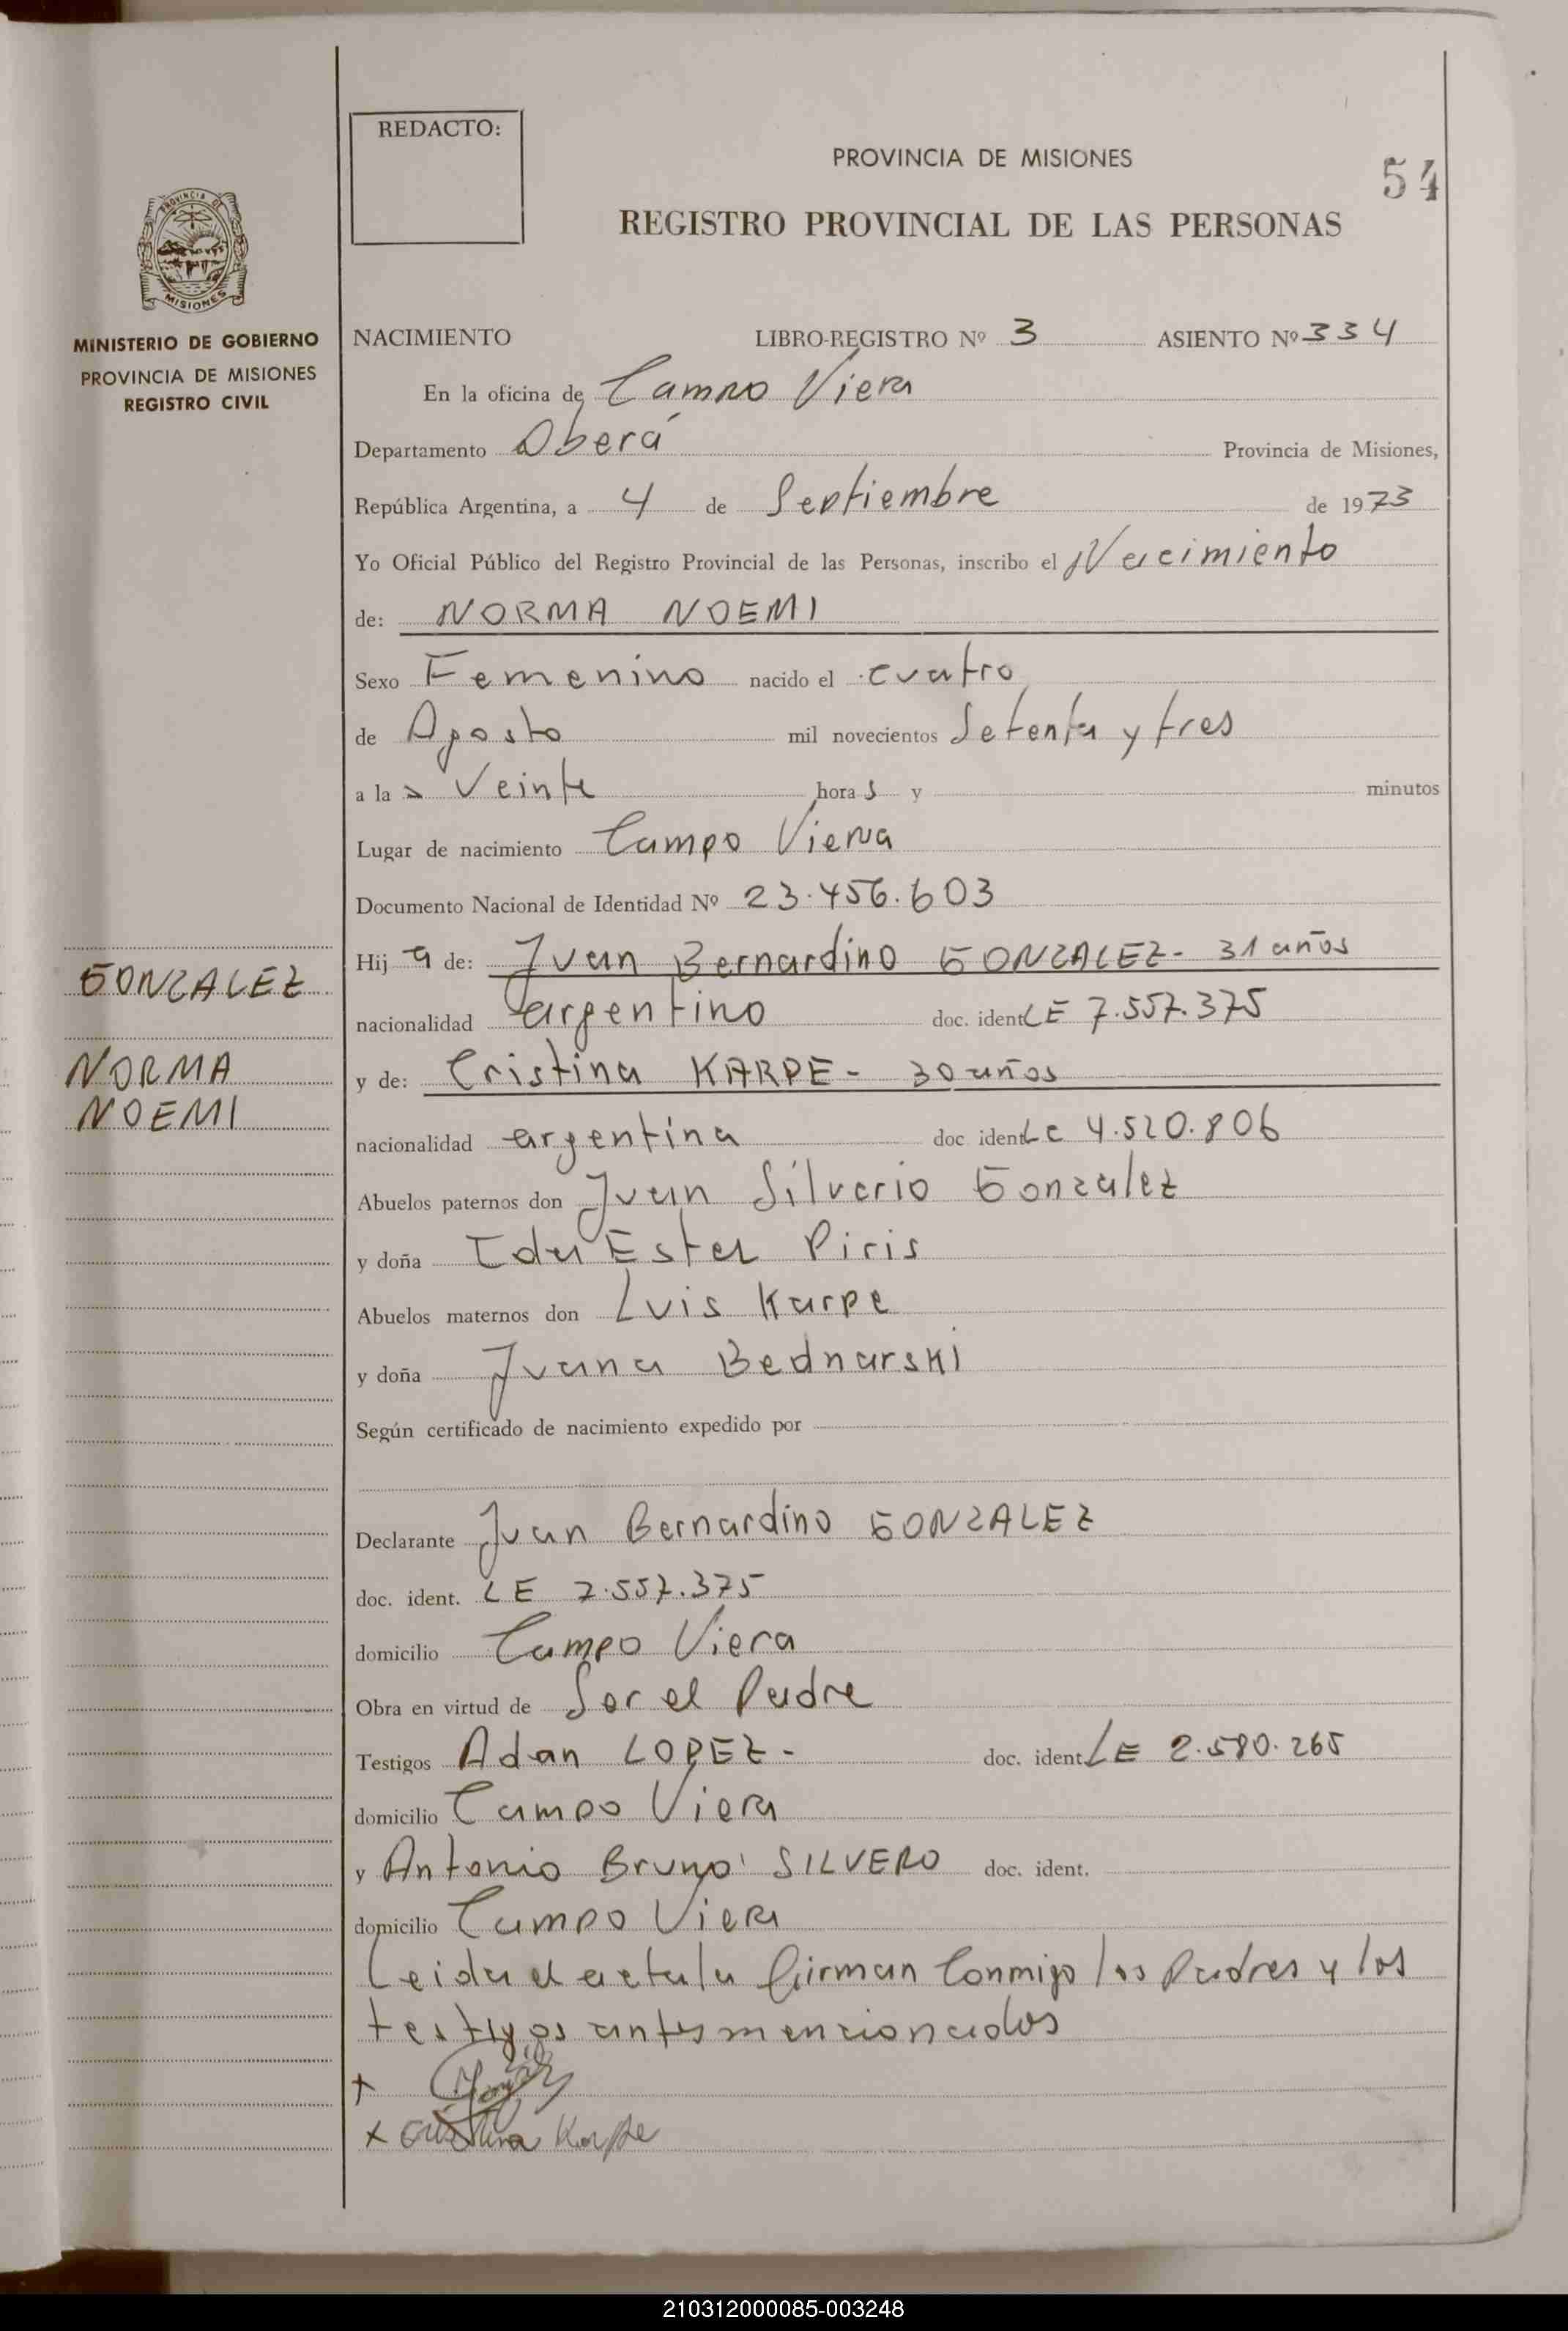 REDACTO:
PROVINCIA DE MISIONES
54
REGISTRO PROVINCIAL DE LAS PERSONAS
PROVINCIA DE
MISIONES
MINISTERIO DE GOBIERNO
PROVINCIA DE MISIONES
REGISTRO CIVIL
NACIMIENTO LIBRO-REGISTRO Nº 3 ASIENTO Nº 334
En la oficina de Campo Viera
Departamento Oberá Provincia de Misiones,
República Argentina, a 4 de Septiembre de 1973
Yo Oficial Público del Registro Provincial de las Personas, inscribo el Nacimiento
de: NORMA NOEMI
Sexo Femenino nacido el cuatro
de Agosto mil novecientos Setenta y tres
a las Veinte horas y minutos
Lugar de nacimiento Campo Viera
Documento Nacional de Identidad Nº 23.456.603
GONZALEZ
NORMA
NOEMI
Hija de: Juan Bernardino GONZALEZ - 31 años
nacionalidad argentino doc. ident LE 7.557.375
y de: Cristina KARPE - 30 años
nacionalidad argentina doc ident Lc 4.520.806
Abuelos paternos don Juan Silverio Gonzalez
y doña Ida Ester Piris
Abuelos maternos don Luis Karpe
y doña Juana Bednarski
Según certificado de nacimiento expedido por
Declarante Juan Bernardino GONZALEZ
doc. ident. LE 7.557.375
domicilio Campo Viera
Obra en virtud de Ser el Padre
Testigos Adan LOPEZ - doc. ident. LE 2.580.265
domicilio Campo Viera
y Antonio Bruno SILVERO doc. ident.
domicilio Campo Viera
Leida el acta la firman Conmigo los Padres y los
testigos antes mencionados
x
x Cristina Karpe
210312000085-003248